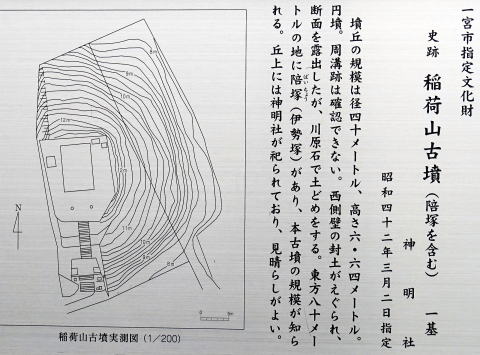 一宮市指定文化財
史跡 稲荷山古墳（陪塚を含む） 一基
神明社
昭和四十二年三月二日指定
墳丘の規模は径四十メートル、高さ六・六四メートル。
円墳。周溝跡は確認できない。西側壁の封土がえぐられ、
断面を露出したが、川原石で土どめをする。東方八十メー
トルの地に陪塚（伊勢塚）があり、本古墳の規模が知ら
れる。丘上には神明社が祀られており、見晴らしがよい。
ばいちょう
8m
9m
10m
12m
12m
11m
10m
9m
8m
N
0
5m
稲荷山古墳実測図（1/200）